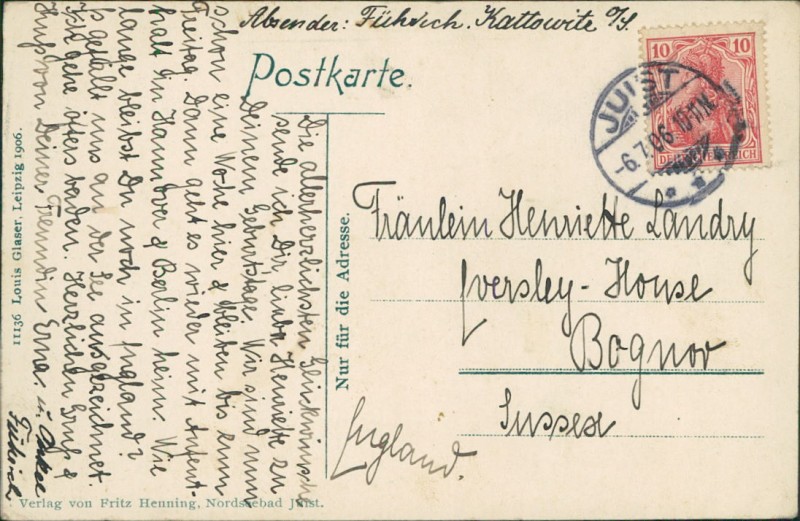 Absender: Führich. Kattowitz O/S.
Postkarte.
10 10
DEUTSCHES REICH
JUIST
6.7.06 10-11V.
Die allerherzlichsten Glückwünsche
sende ich Dir, liebe Henriette zu
Deinem Geburtstage. Wir sind nun
schon eine Woche hier & bleiben bis zum
Freitag. Dann geht es wieder mit Aufent-
halt in Hannover & Berlin heim. Wie
lange bleibst Du noch in England?
Es gefällt uns an der See ausgezeichnet.
Ich gehe öfters baden. Herzlichen Gruß &
Kuß von Deiner Freundin Erna. u. Onkel
Führich
Nur für die Adresse.
Fräulein Henriette Landry
Eversley-House
Bognor
Sussex
England.
11136 Louis Glaser, Leipzig 1906.
Verlag von Fritz Henning, Nordseebad Juist.